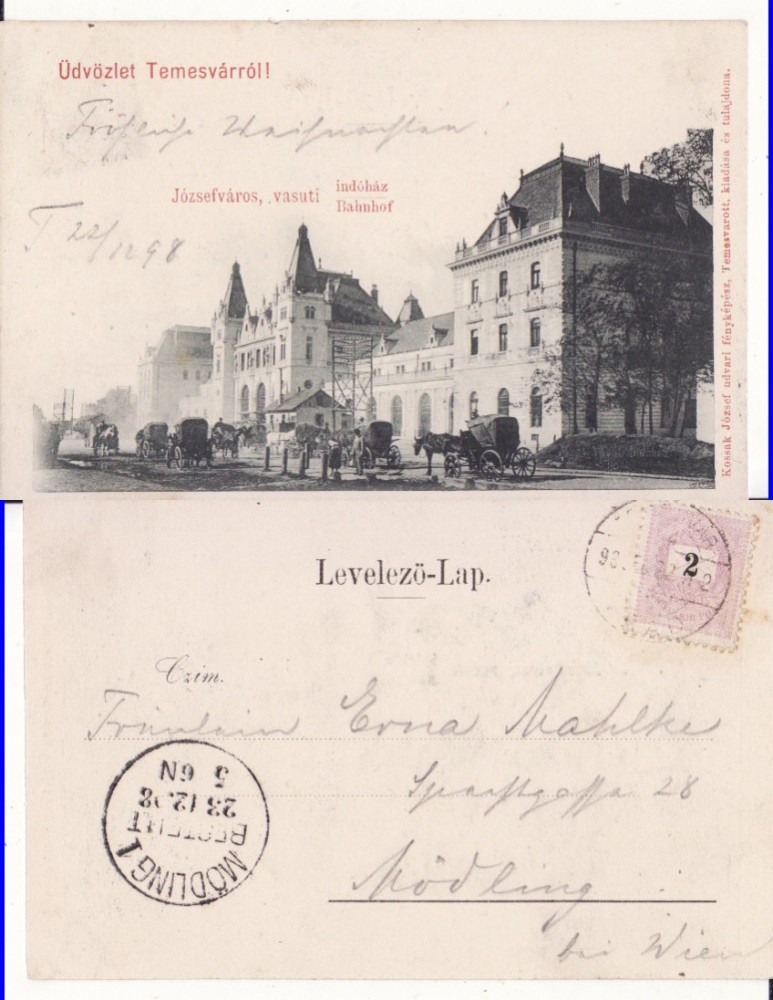 Üdvözlet Temesvárról!
Fröhliche Weihnachten!
Józsefváros, vasuti indóház
Bahnhof
T 22/12 98
Kossak József udvari fényképész, Temesvarott, kiadása és tulajdona.
Levelező-Lap.
2
98
Czim.
Fräulein Erna Mahlke
28
Mödling
bei Wien
MÖDLING 1
BESTELLT
23.12.98
5 6N